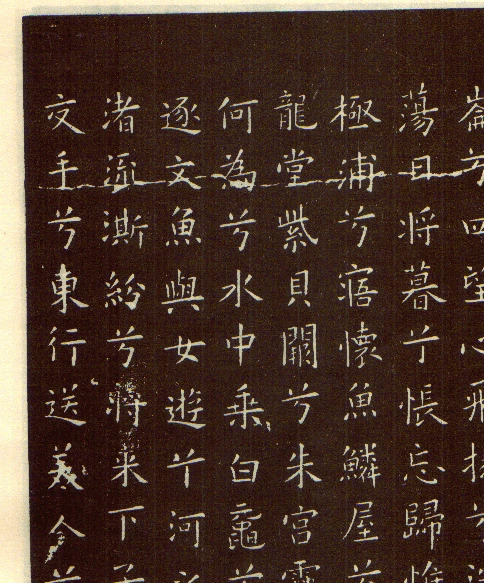 崙兮四望心飛揚兮
蕩日将暮兮悵忘歸惟
極浦兮寤懷魚鱗屋兮
龍堂紫貝闕兮朱宮靈
何為兮水中乘白黿兮
逐文魚與女遊兮河
渚流澌紛兮将来下子
交手兮東行送美